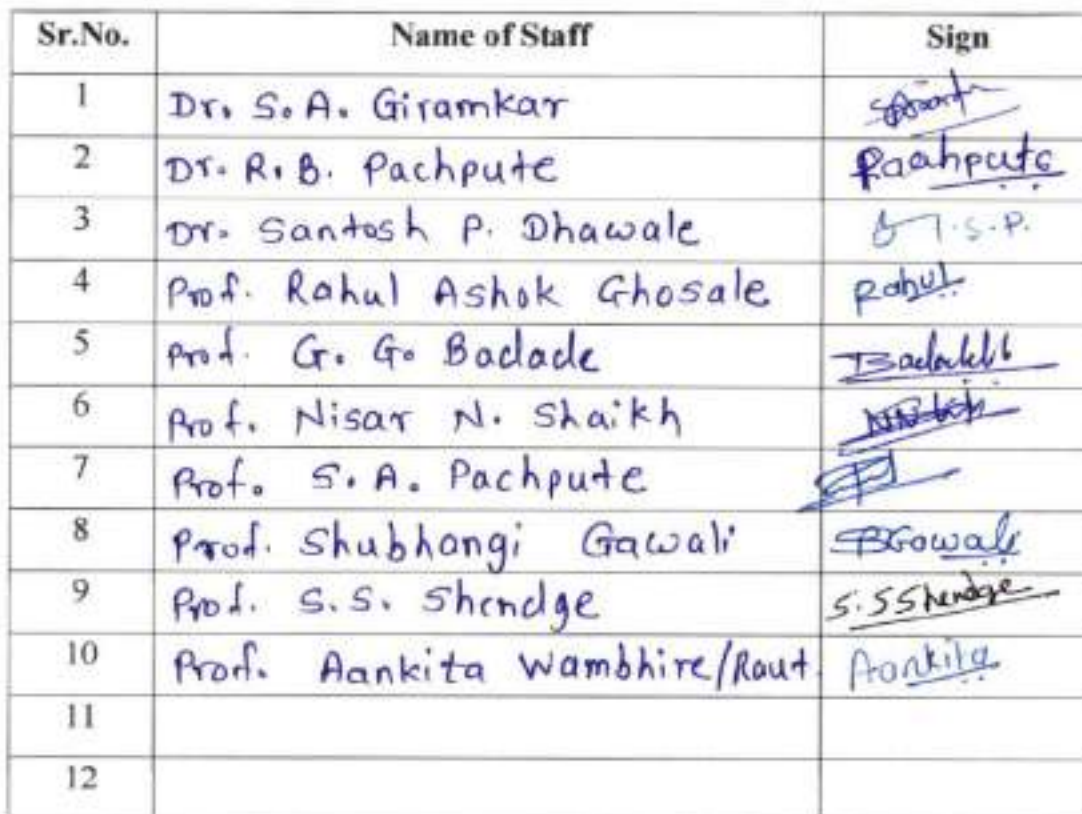 Sr.No. Name of Staff Sign
1 Dr. S. A. Giramkar
2 Dr. R. B. Pachpute Paahpute
3 Dr. Santosh P. Dhawale S.P.
4 Prof. Rahul Ashok Ghosale Rahul
5 Prof. G. G. Badade
6 Prof. Nisar N. Shaikh
7 Prof. S. A. Pachpute
8 Prof. Shubhangi Gawali SBGawali
9 Prof. S. S. Shendge S.S Shendge
10 Prof. Aankita Wambhire/Raut. Aankita
11
12